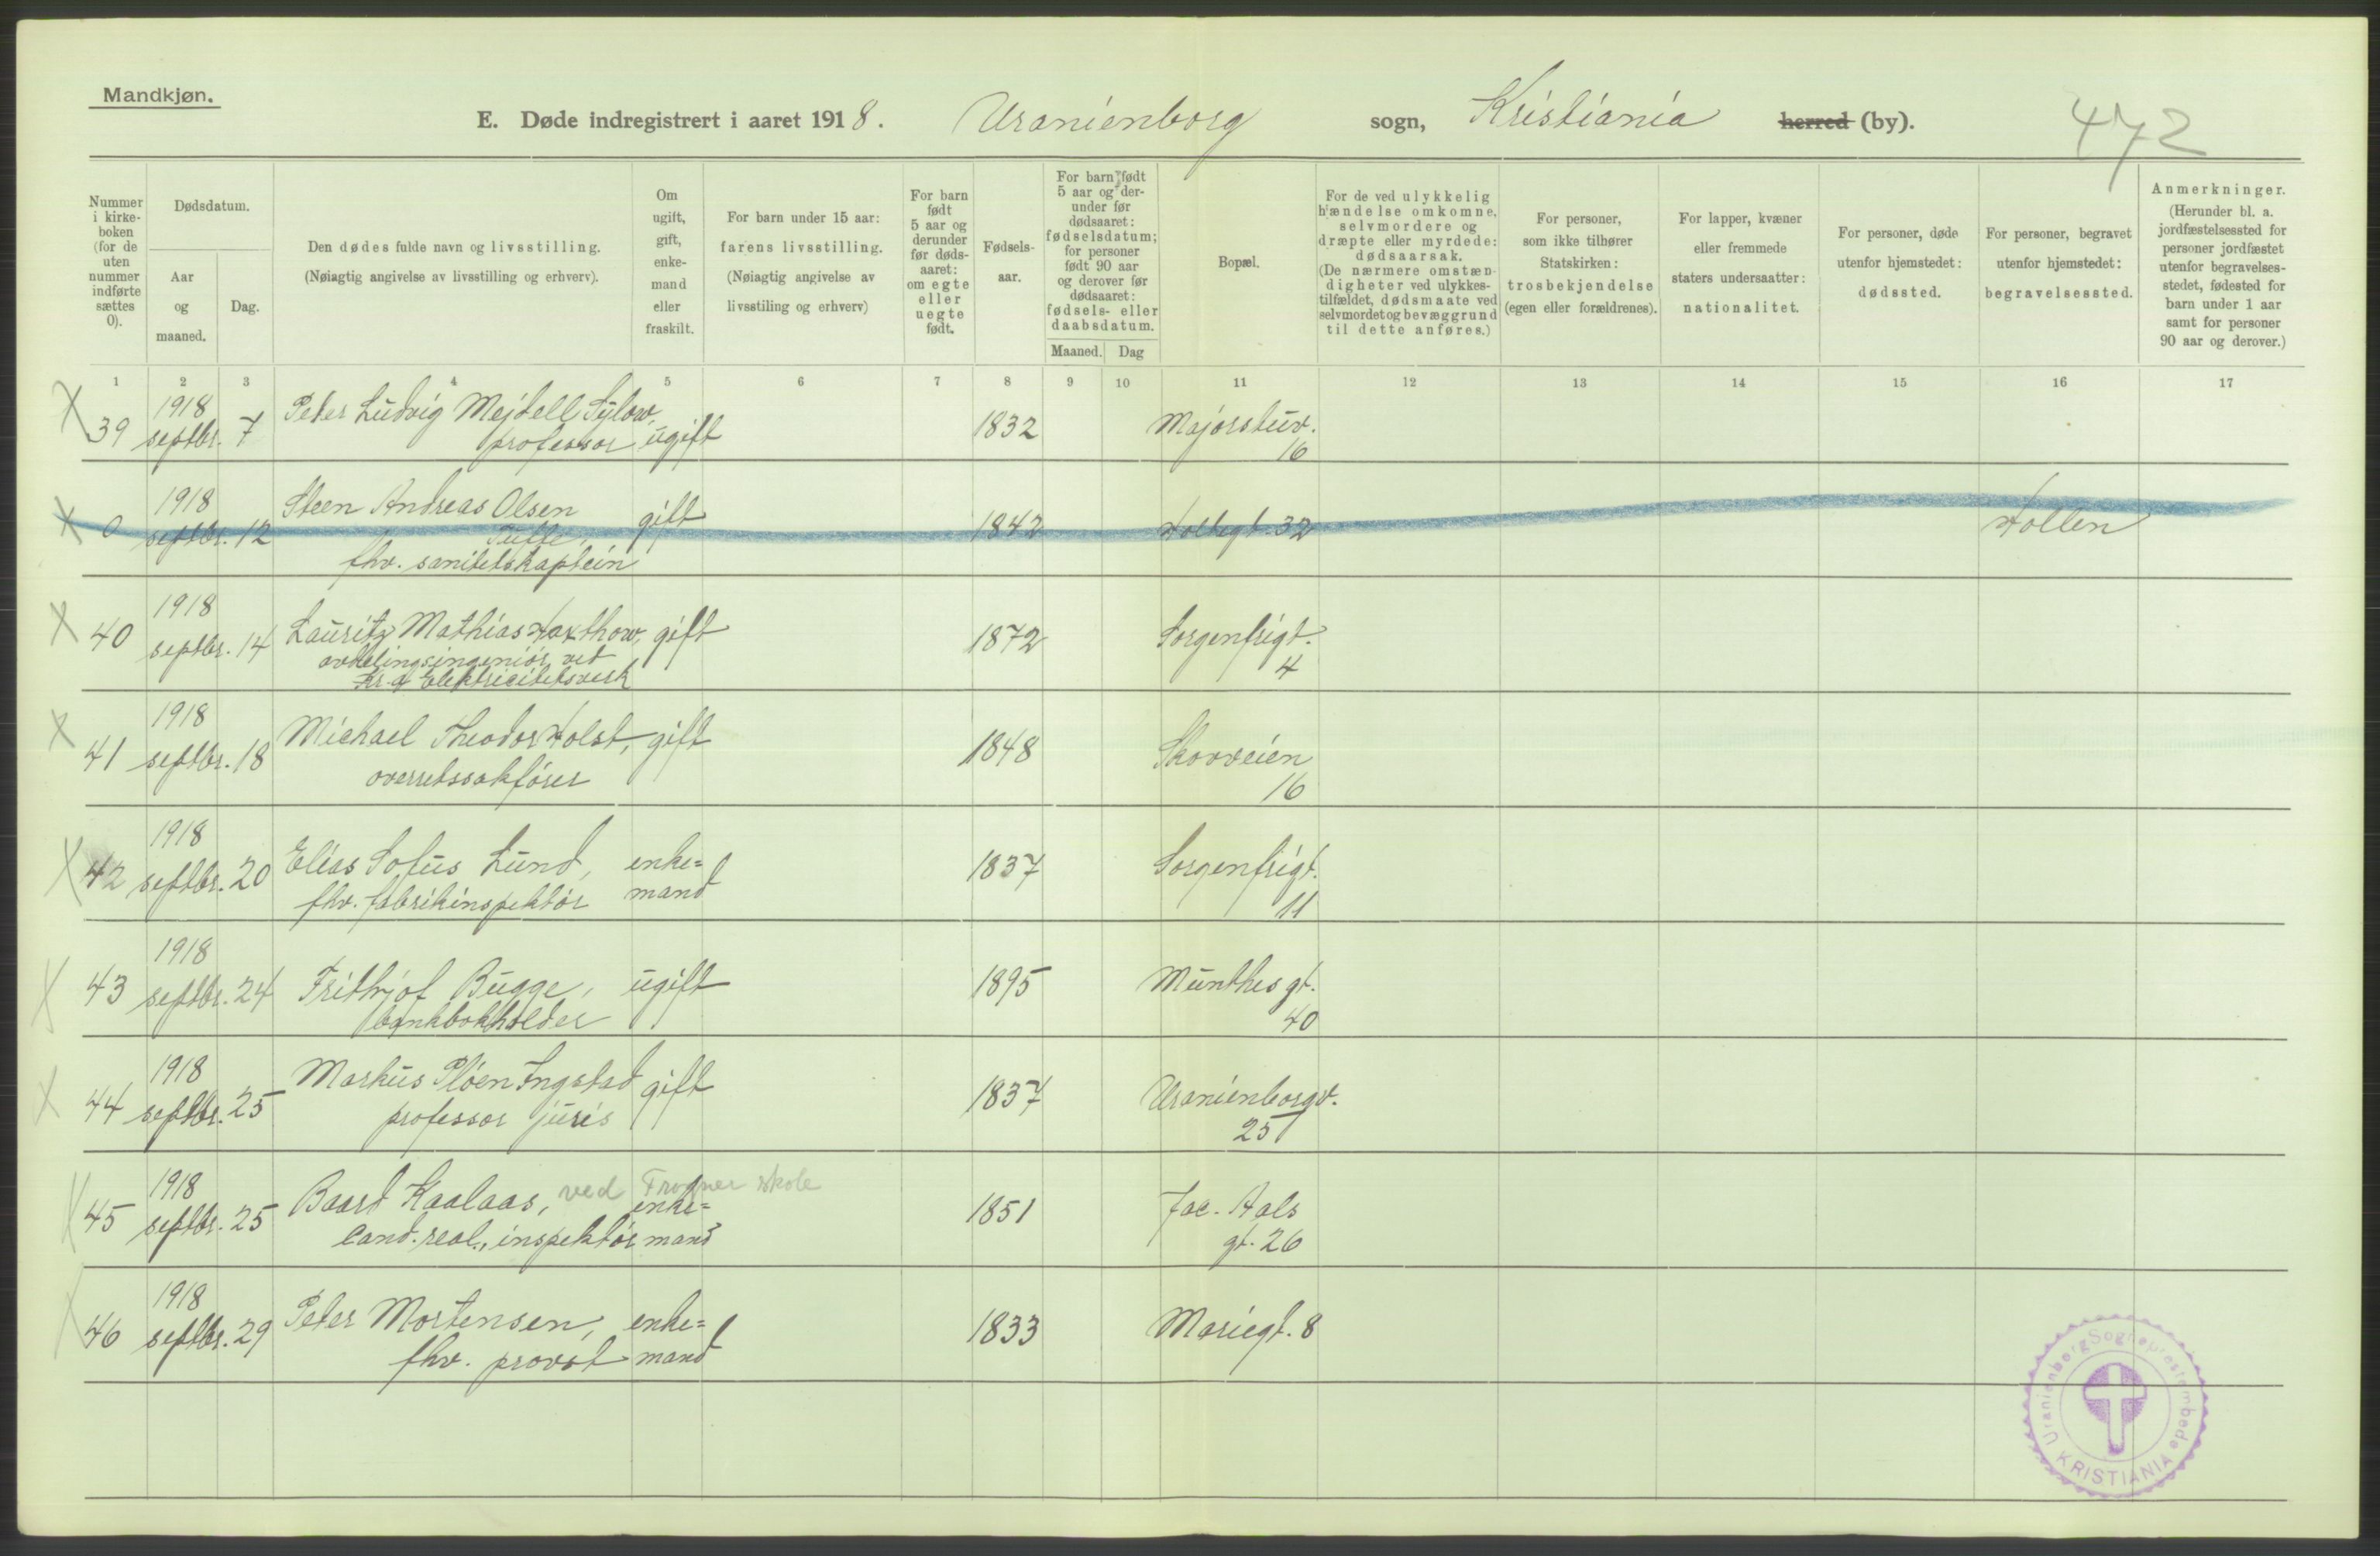 Mandkjøn.
E. Døde indregistrert i aaret 1918. Uranienborg sogn, Kristiania herred (by). 472
Nummer i kirke-boken (for de uten nummer indførte sættes 0).
Dødsdatum.
Aar og maaned.
Dag.
Den dødes fulde navn og livsstilling.
(Nøiagtig angivelse av livsstilling og erhverv).
Om ugift, gift, enke-mand eller fraskilt.
For barn under 15 aar:
farens livsstilling.
(Nøiagtig angivelse av
livsstiling og erhverv)
For barn født 5 aar og derunder før døds-aaret: om egte eller uegte født.
Fødsels-aar.
For barn født 5 aar og der-under før dødsaaret: fødselsdatum; for personer født 90 aar og derover før dødsaaret: fødsels- eller daabsdatum.
Maaned. Dag
Bopæl.
For de ved ulykkelig hændelse omkomne, selvmordere og dræpte eller myrdede: dødsaarsak. (De nærmere omstæn-digheter ved ulykkes-tilfældet, dødsmaate ved selvmordet og bevæggrund til dette anføres.)
For personer, som ikke tilhører Statskirken: trosbekjendelse (egen eller forældrenes).
For lapper, kvæner eller fremmede staters undersaatter: nationalitet.
For personer, døde utenfor hjemstedet: dødssted.
For personer, begravet utenfor hjemstedet: begravelsessted.
Anmerkninger. (Herunder bl. a. jordfæstelsessted for personer jordfæstet utenfor begravelses-stedet, fødested for barn under 1 aar samt for personer 90 aar og derover.)
1 2 3 4 5 6 7 8 9 10 11 12 13 14 15 16 17
X 39 1918 septbr. 7 Peter Ludvig Mejdell Sylow, professor ugift 1832 Majorstuv. 16
X 0 1918 septbr. 12 Steen Andreas Olsen fhv. sanitetskaptein gift 1842 Holtegt. 32 Hollen
X 40 1918 septbr. 14 Lauritz Mathias Haxthow, avdelingsingeniør ved Kr.a Elektricitetsverk gift 1872 Sorgenfrigt. 4
X 41 1918 septbr. 18 Michael Theodor Holst, overretssakfører gift 1848 Skovveien 16
X 42 1918 septbr. 20 Elias Sofus Lund, fhv. fabrikinspektør enke=mand 1837 Sorgenfrigt. 11
X 43 1918 septbr. 24 Frithjof Bugge, bankbokholder ugift 1895 Munthes gt. 40
X 44 1918 septbr. 25 Markus Pløen Ingstad professor juris gift 1837 Uranienborgv. 25
X 45 1918 septbr. 25 Baard Kaalaas, ved Frogner skole cand. real., inspektør enke=mand 1851 Jac. Aals gt. 26
X 46 1918 septbr. 29 Peter Mortensen, fhv. provst enke=mand 1833 Mariegt. 8
Uranienborg Sogneprestembede KRISTIANIA